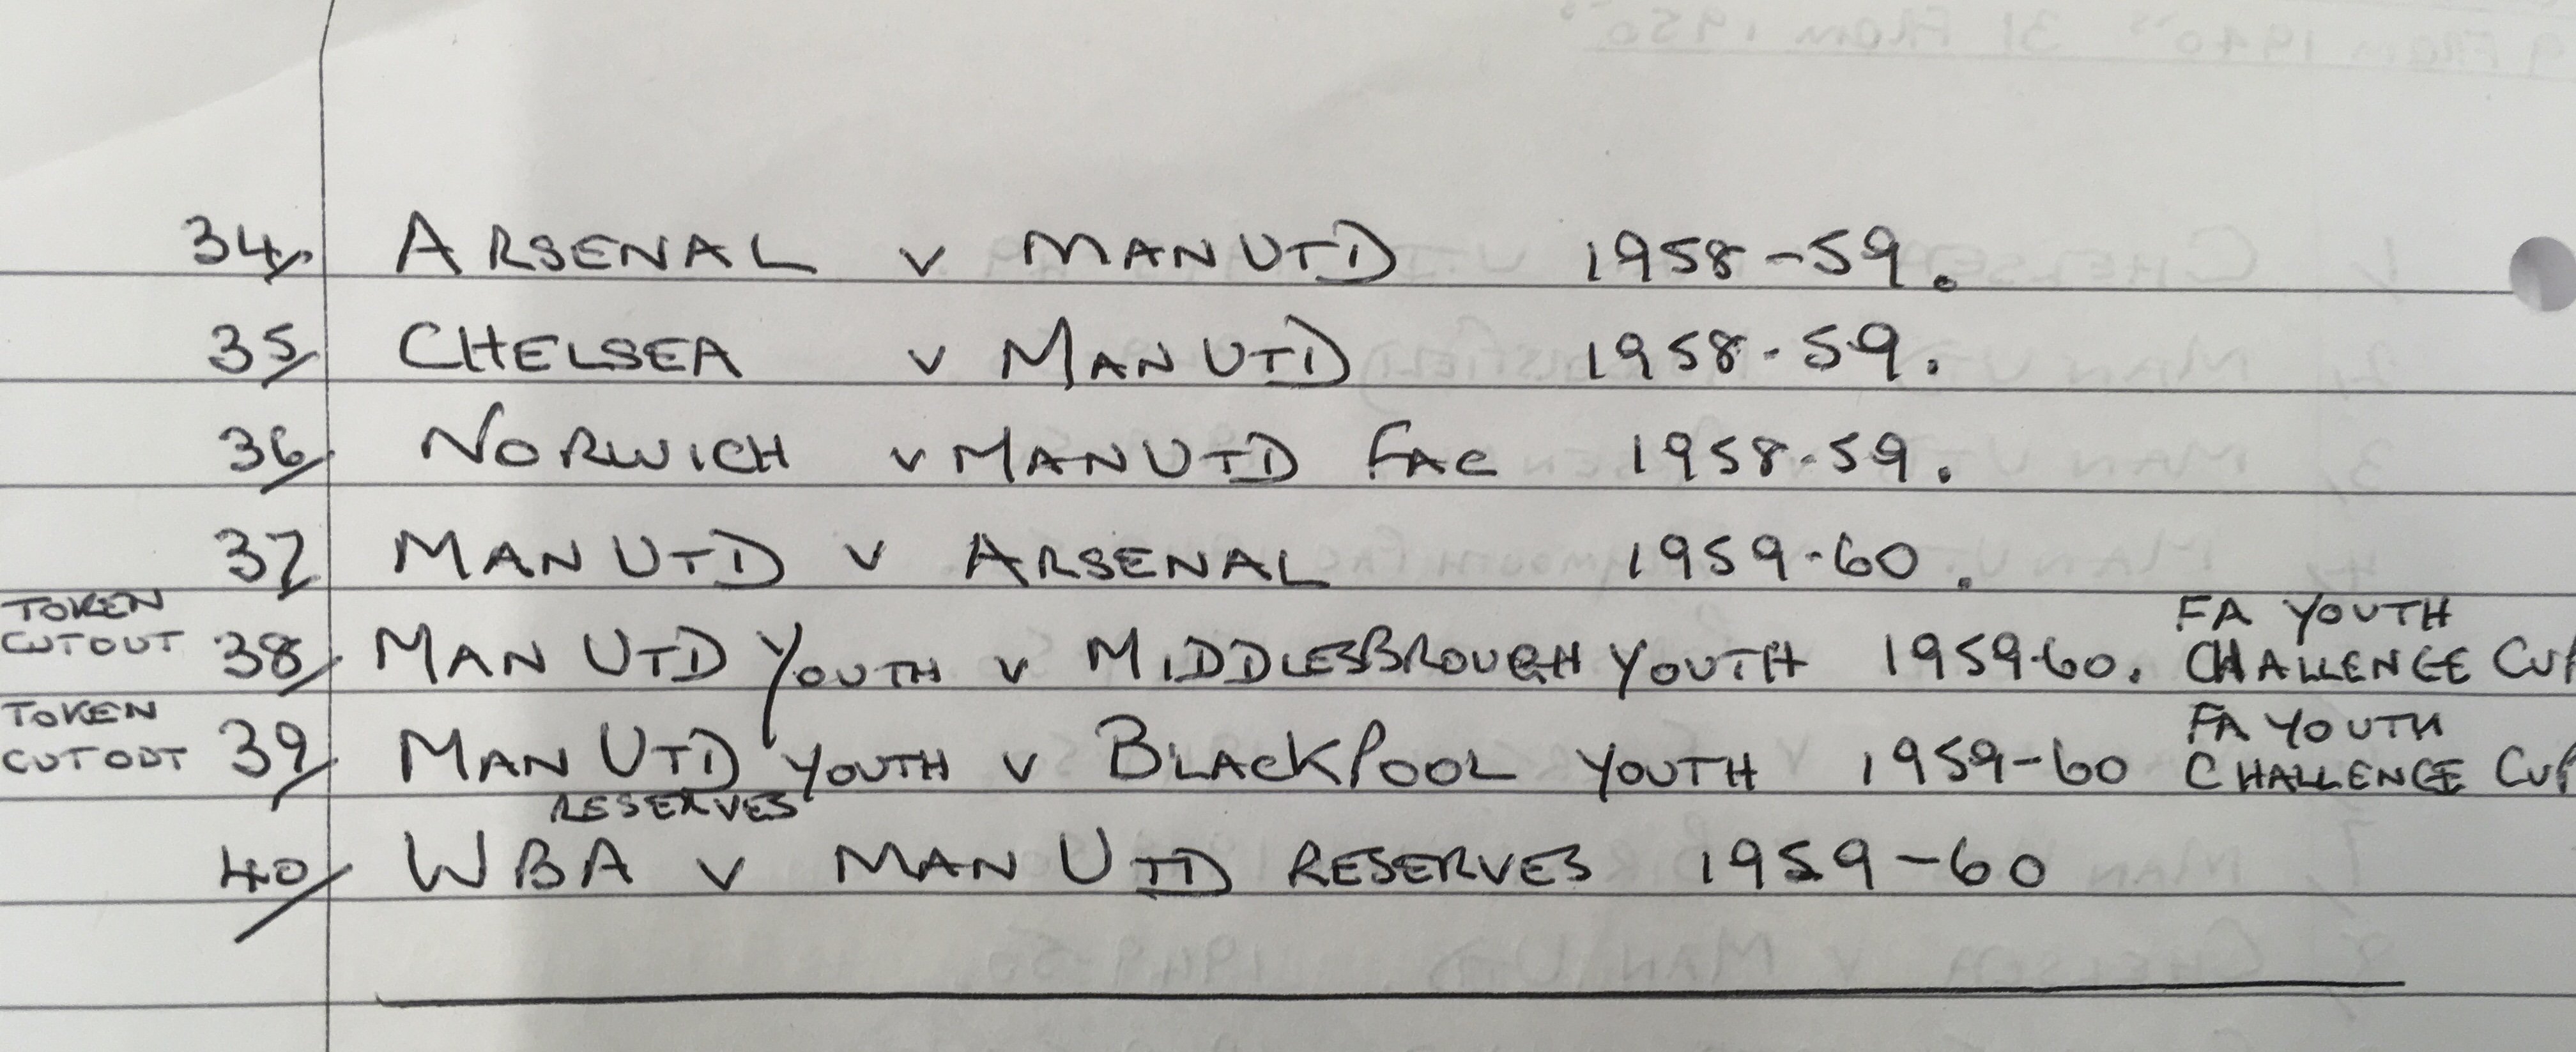 34/. ARSENAL v MAN UTD 1958-59.
35/ CHELSEA v MAN UTD 1958-59.
36/ NORWICH v MAN UTD FAC 1958-59.
37 MAN UTD v ARSENAL 1959-60.
TOKEN CUTOUT 38/ MAN UTD YOUTH v MIDDLESBROUGH YOUTH 1959-60. FA YOUTH CHALLENGE CUP
TOKEN CUTOUT 39/ MAN UTD YOUTH v BLACKPOOL YOUTH 1959-60 FA YOUTH CHALLENGE CUP
RESERVES
40/ WBA v MAN UTD RESERVES 1959-60